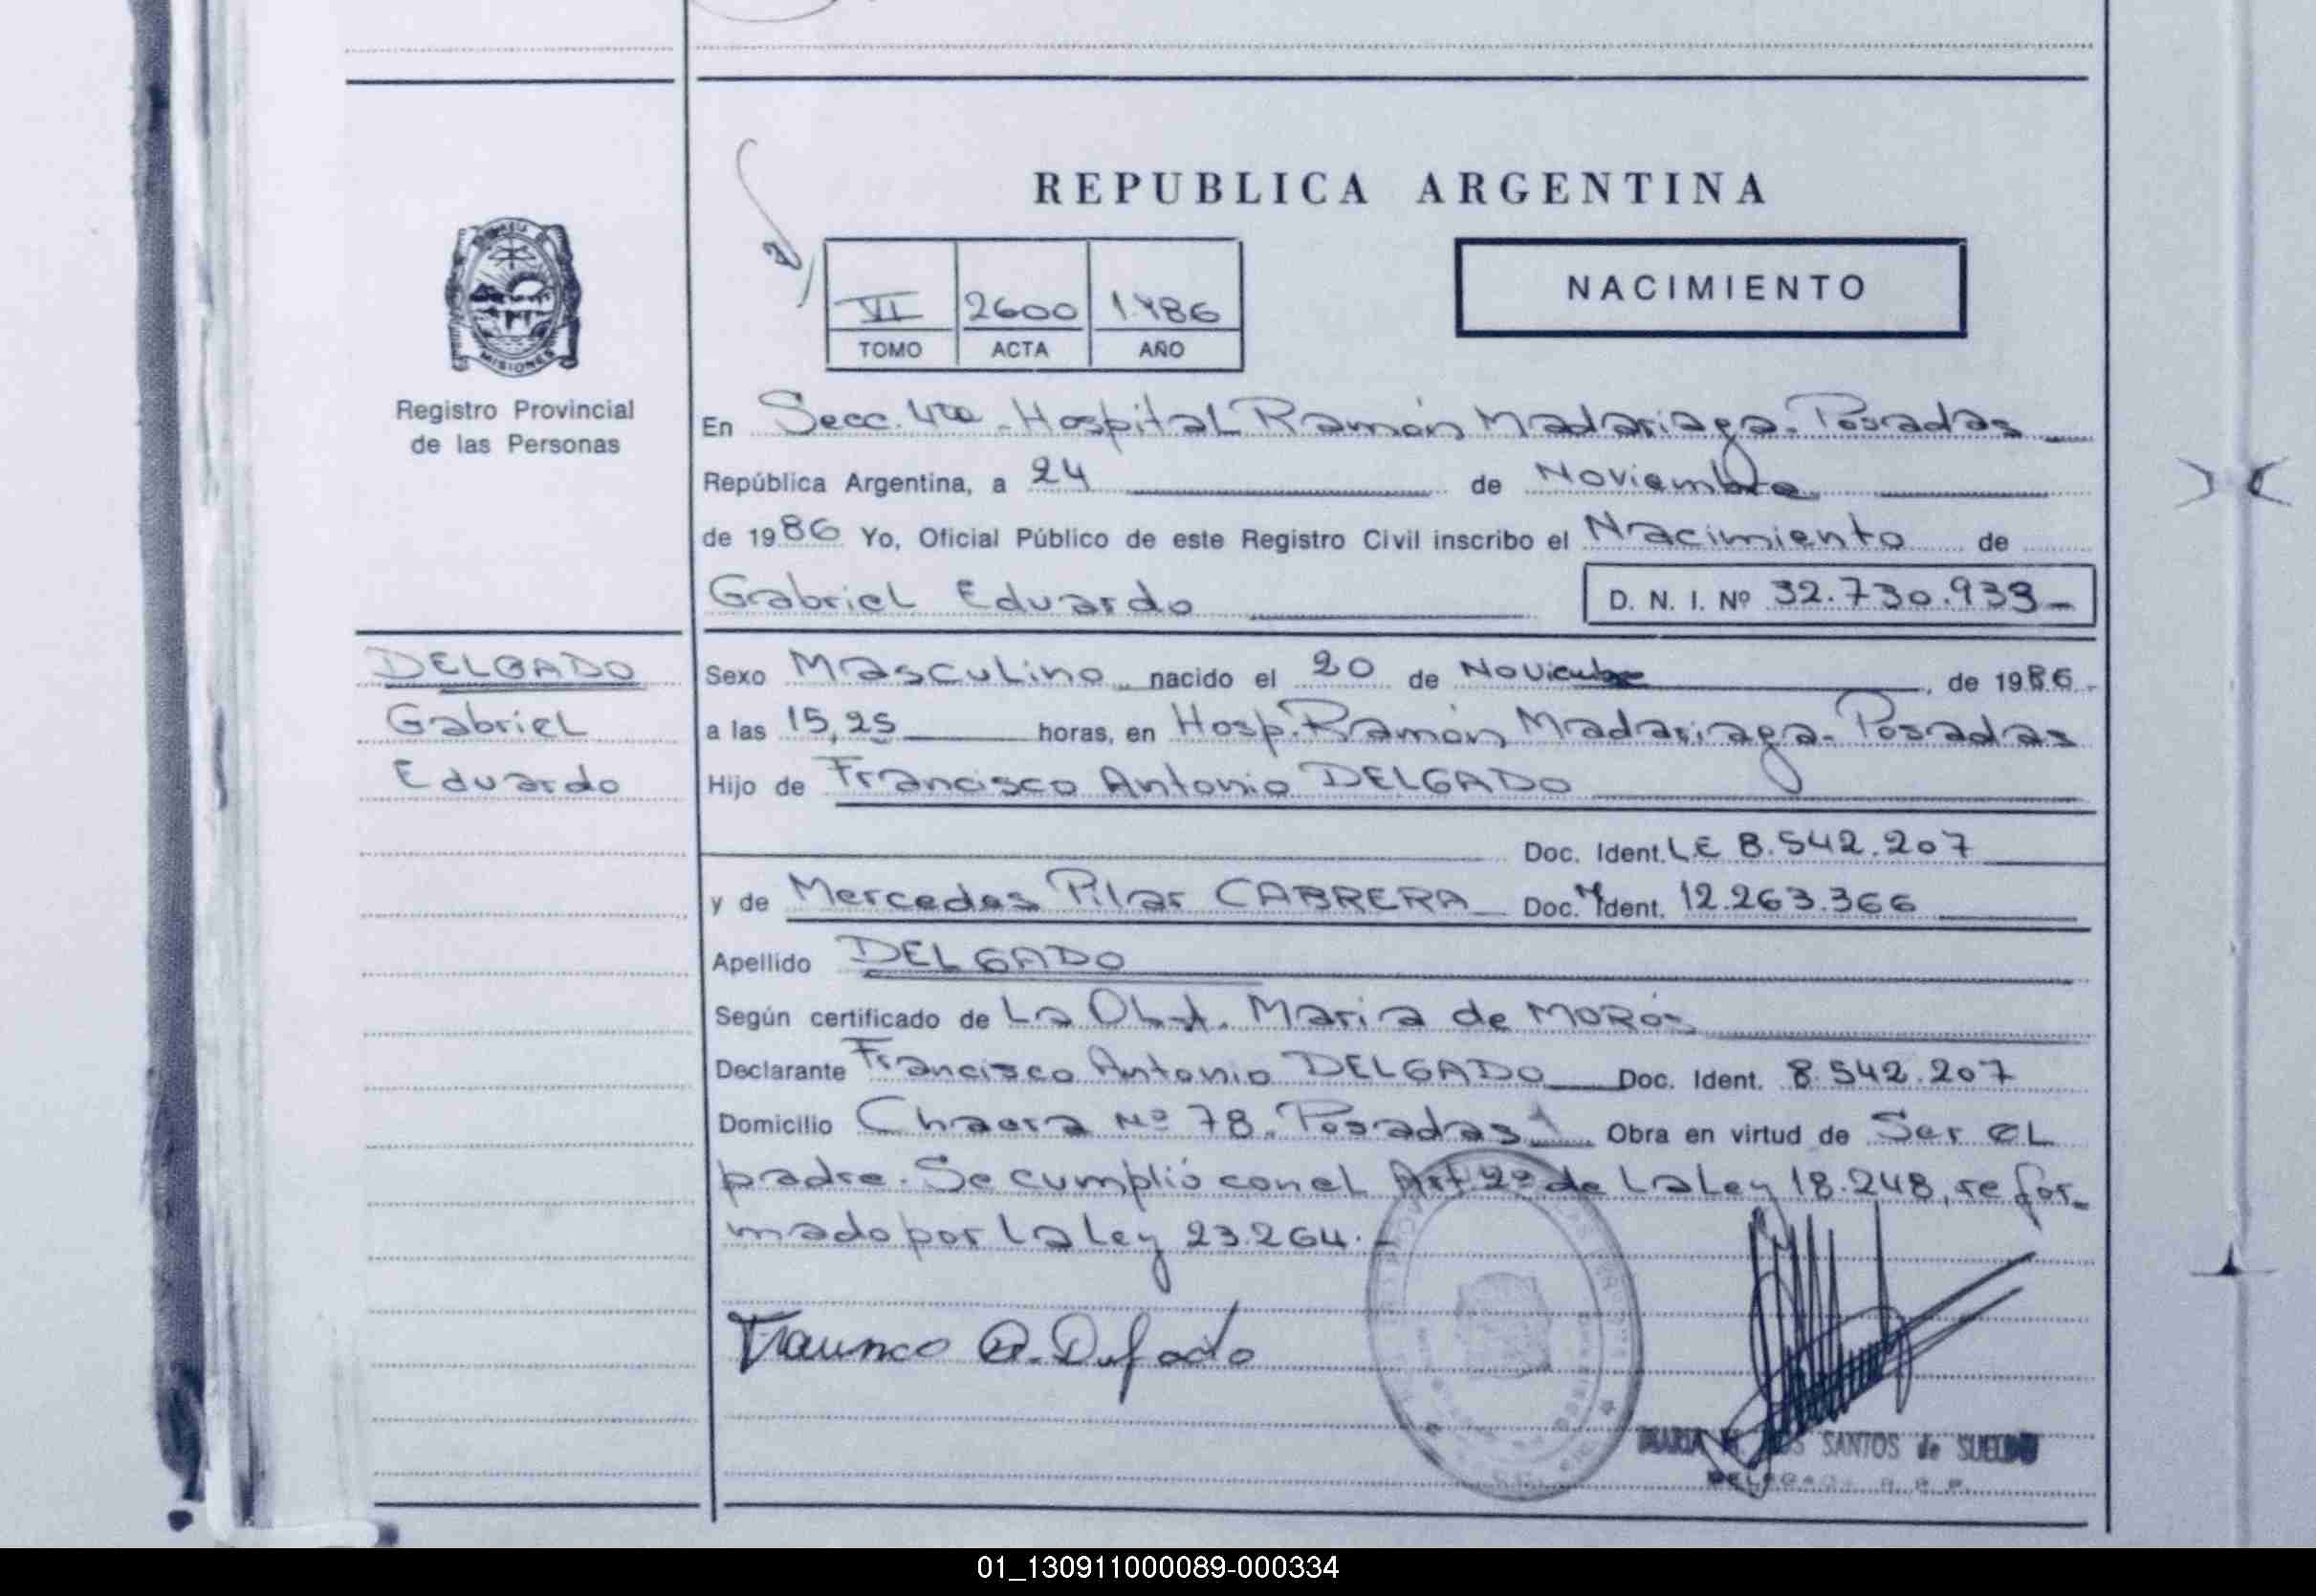 REPUBLICA ARGENTINA
NACIMIENTO
VI 2600 1.986
TOMO ACTA AÑO
MISIONES
Registro Provincial
de las Personas
En Secc. 4ta - Hospital Ramón Madariaga - Posadas
República Argentina, a 24 de Noviembre
de 1986 Yo, Oficial Público de este Registro Civil inscribo el Nacimiento de
Gabriel Eduardo D. N. I. Nº 32.730.939-
DELGADO
Gabriel
Eduardo
Sexo Masculino nacido el 20 de Noviembre, de 1986
a las 15,25 horas, en Hosp. Ramón Madariaga - Posadas
Hijo de Francisco Antonio DELGADO
Doc. Ident. L.E 8.542.207
y de Mercedes Pilar CABRERA Doc. Ident. 12.263.366
Apellido DELGADO
Según certificado de La Obst. Maria de
Declarante Francisco Antonio DELGADO Doc. Ident. 8.542.207
Domicilio Chacra Nº 78. Posadas Obra en virtud de Ser el
padre. Se cumplió con el Art. 2º de La Ley 18.248, refor-
mado por La Ley 23.264.-
Francisco A. Delgado
MARIA SANTOS de SUELDO
01_130911000089-000334